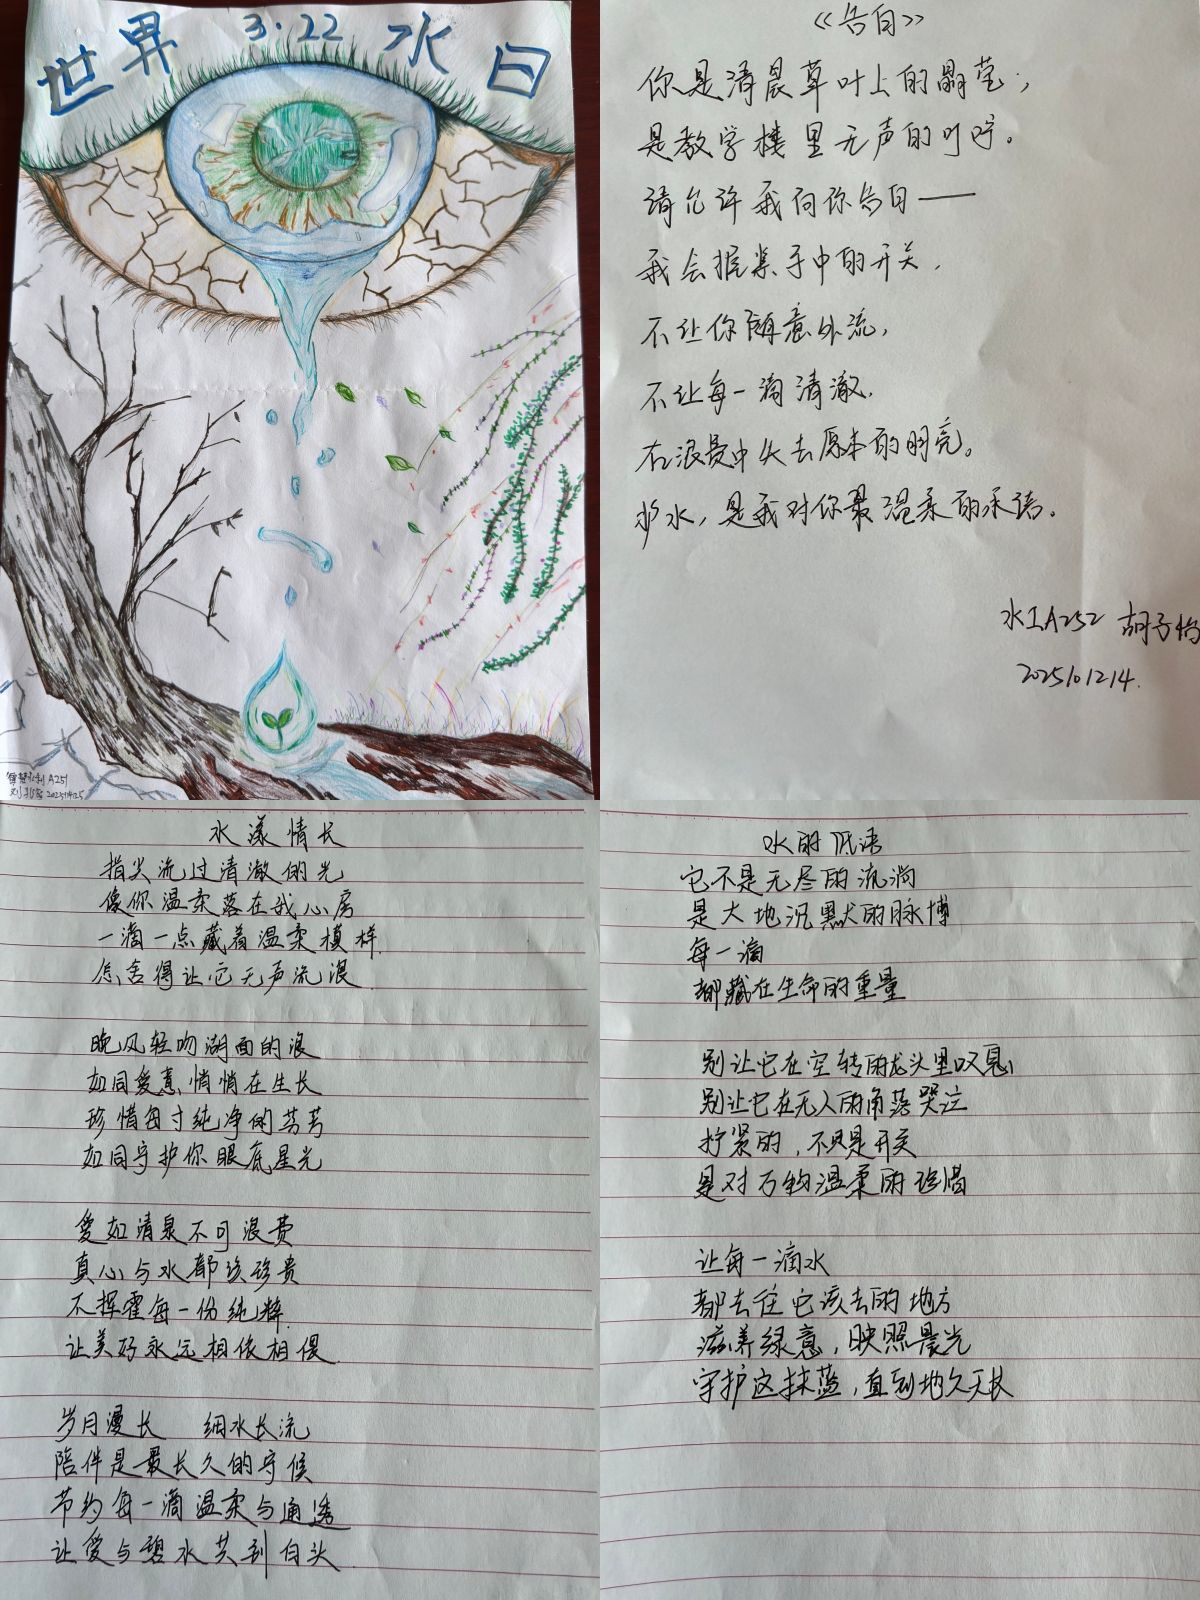 世界 3.22 水日
水利A251
《告白》
你是清晨草叶上的晶莹,
是教学楼里无声的叮咛。
请允许我向你告白——
我会握紧手中的开关,
不让你随意外流,
不让每一滴清澈,
在浪费中失去原本的明亮。
护水,是我对你最温柔的承诺。
水工A252 胡子怡
2025101214.
水漾情长
指尖流过清澈的光
像你温柔落在我心房
一滴一点藏着温柔模样
怎舍得让它无声流浪
晚风轻吻湖面的浪
如同爱意悄悄在生长
珍惜每寸纯净的芬芳
如同守护你眼底星光
爱如清泉不可浪费
真心与水都该珍贵
不挥霍每一份纯粹
让美好永远相依相偎
岁月漫长 细水长流
陪伴是最长久的守候
节约每一滴温柔与通透
让爱与碧水共到白头
水的低语
它不是无尽的流淌
是大地沉默的脉搏
每一滴
都藏在生命的重量
别让它在空转的龙头里叹息
别让它在无人的角落哭泣
拧紧的,不只是开关
是对万物温柔的珍惜
让每一滴水
都去往它该去的地方
滋养绿意,映照晨光
守护这抹蓝,直到地久天长